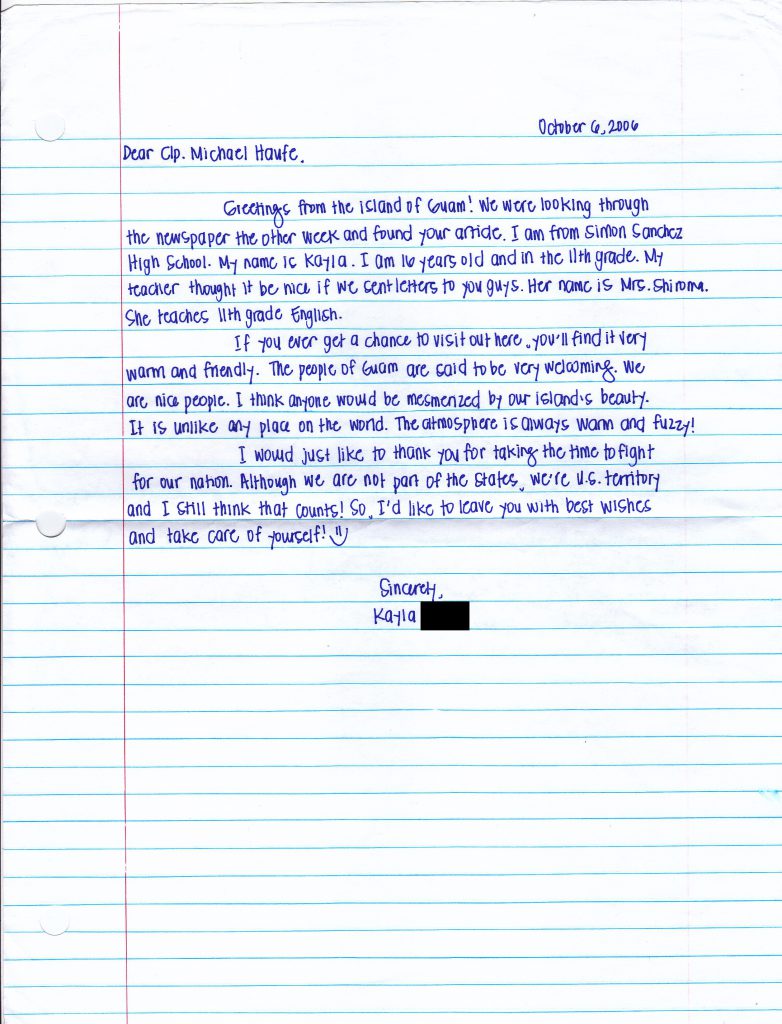 October 6, 2006
Dear Clp. Michael Haufe,
Greetings from the island of Guam! We were looking through
the newspaper the other week and found your article. I am from Simon Sanchez
High School. My name is Kayla. I am 16 years old and in the 11th grade. My
teacher thought it be nice if we sent letters to you guys. Her name is Mrs. Shiroma.
She teaches 11th grade English.
If you ever get a chance to visit out here, you'll find it very
warm and friendly. The people of Guam are said to be very welcoming. We
are nice people. I think anyone would be mesmerized by our island's beauty.
It is unlike any place on the world. The atmosphere is always warm and fuzzy!
I would just like to thank you for taking the time to fight
for our nation. Although we are not part of the states, we're U.S. territory
and I still think that counts! So, I'd like to leave you with best wishes
and take care of yourself!
Sincerely,
Kayla